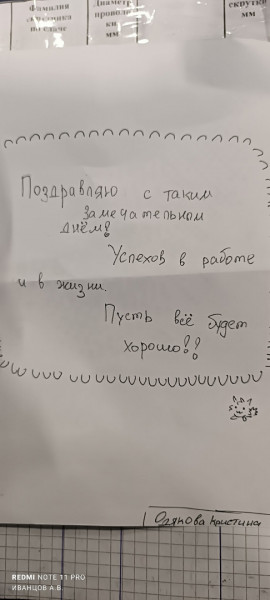 Фамилия
Диаметр
проволо
ки
мм
скрутки
мм
Поздравляю с таким
замечательном
днём!
Успехов в работе
и в жизни.
Пусть всё будет
хорошо!!
Кристина
REDMI NOTE 11 PRO
ИВАНЦОВ А.В.